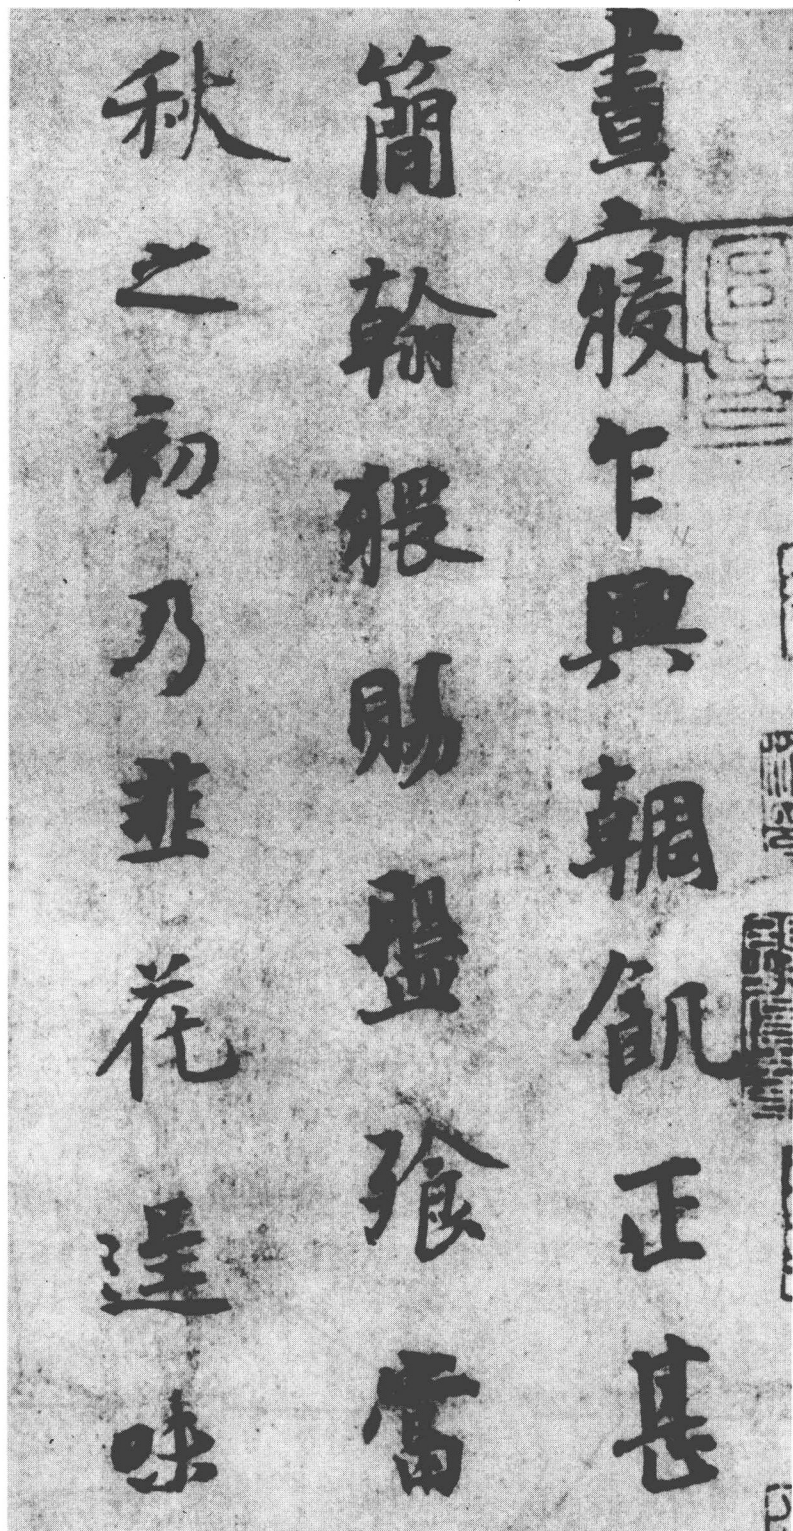 晝寢乍興輖飢正甚
簡翰猥賜盤飧當
秋之初乃韭花逞味